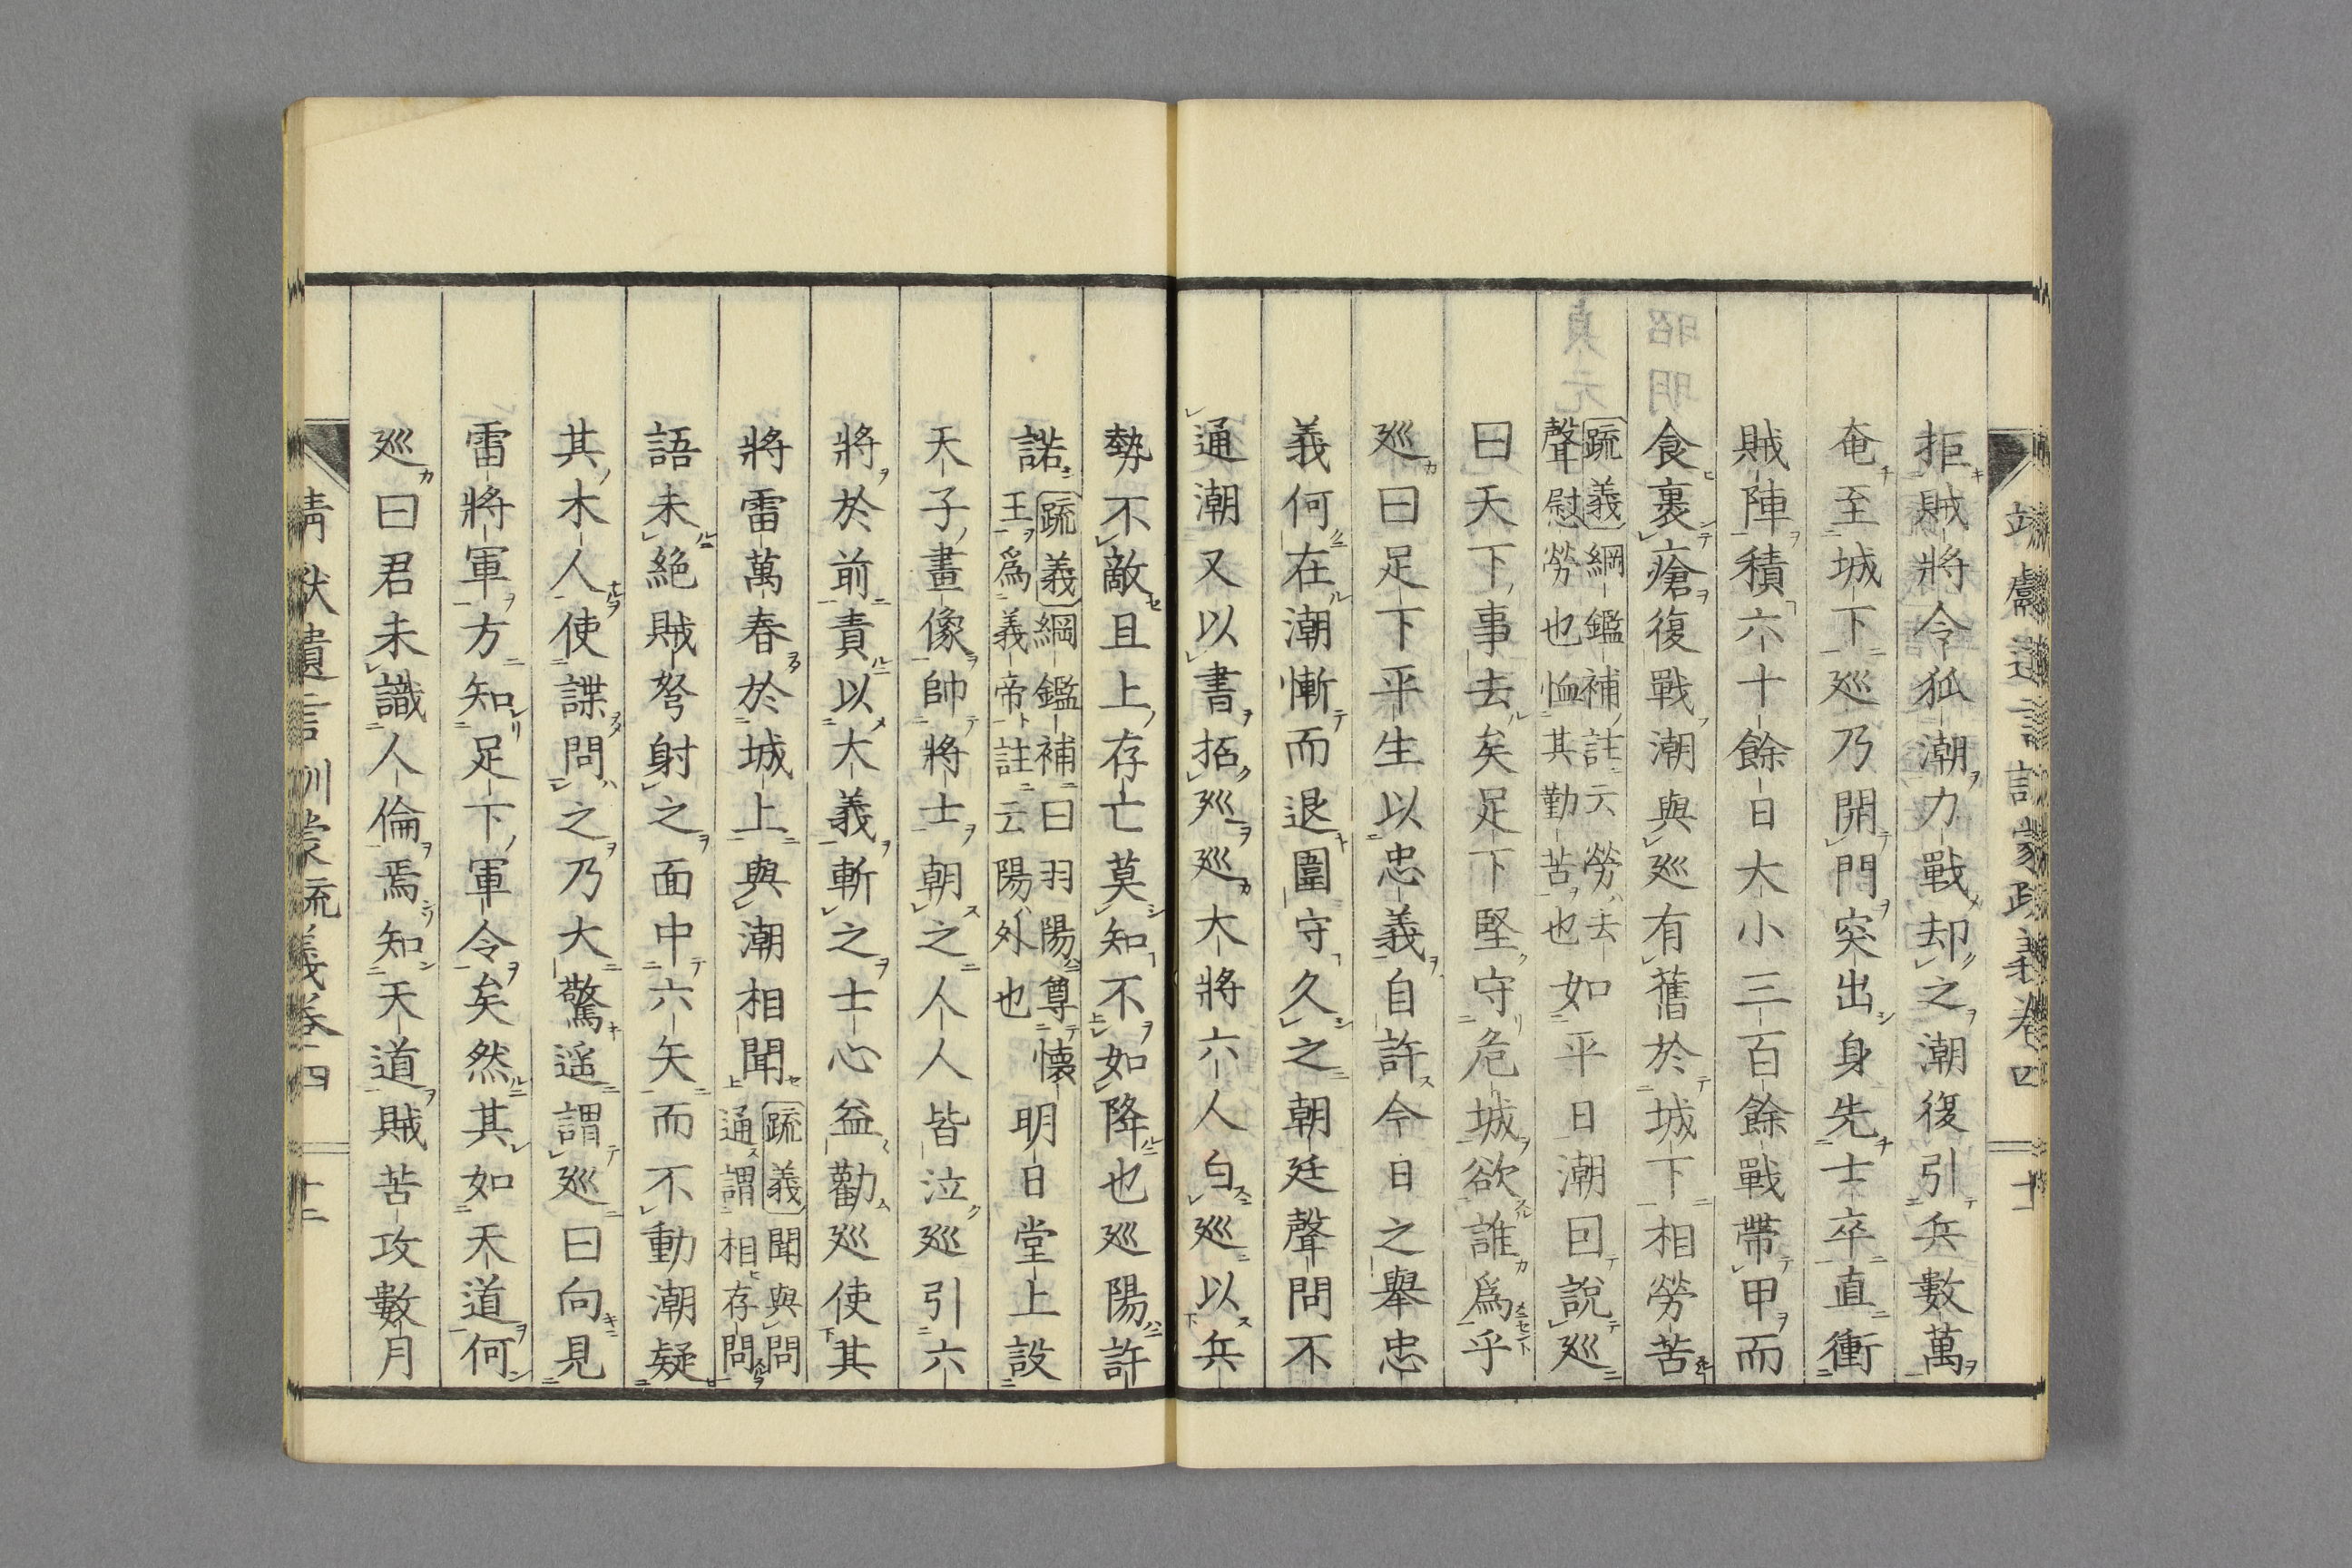 拒賊將令狐潮力戰却之潮復引兵數萬
奄至城下廵乃開門突出身先士卒直衝
賊陣積六十餘日大小三百餘戰帶甲而
食裹瘡復戰潮與廵有舊於城下相勞苦
疏義綱鑑補註云勞去
聲慰勞也恤其勤苦也
如平日潮回說廵
曰天下事去矣足下堅守危城欲誰爲乎
廵曰足下平生以忠義自許今日之舉忠
義何在潮慚而退圍守久之朝廷聲問不
通潮又以書招廵廵大將六人白廵以兵
勢不敵且上存亡莫知不如降也廵陽許
諾
疏義綱鑑補曰羽陽尊懷
王爲義帝註云陽外也
明日堂上設
天子畫像帥將士朝之人人皆泣廵引六
將於前責以大義斬之士心益勸廵使其
將雷萬春於城上與潮相聞
疏義聞與問
通謂相存問
語未絕賊弩射之面中六矢而不動潮疑
其木人使諜問之乃大驚遥謂廵曰向見
雷將軍方知足下軍令矣然其如天道何
廵曰君未識人倫焉知天道賊苦攻數月
靖獻遺言訓蒙疏義卷四
十二